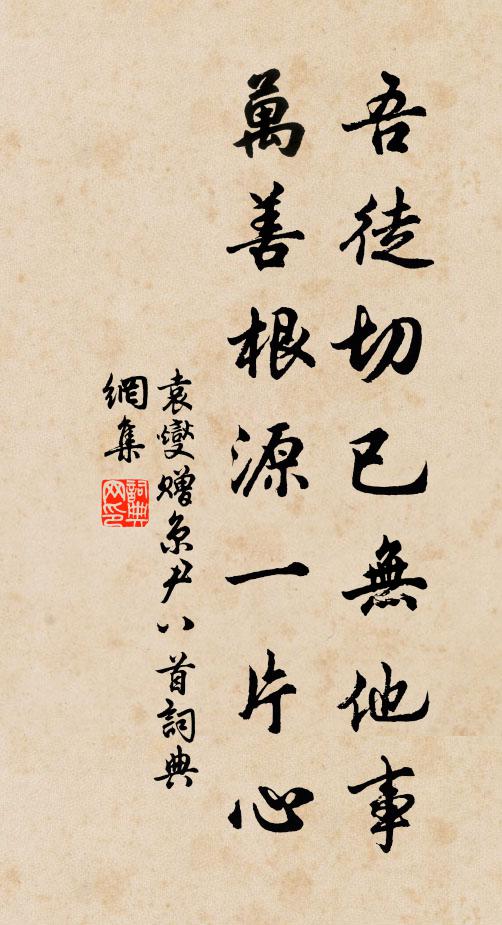 吾徒切已無他事
萬善根源一片心
袁燮贈京尹八首詞典
網集
詞典網印